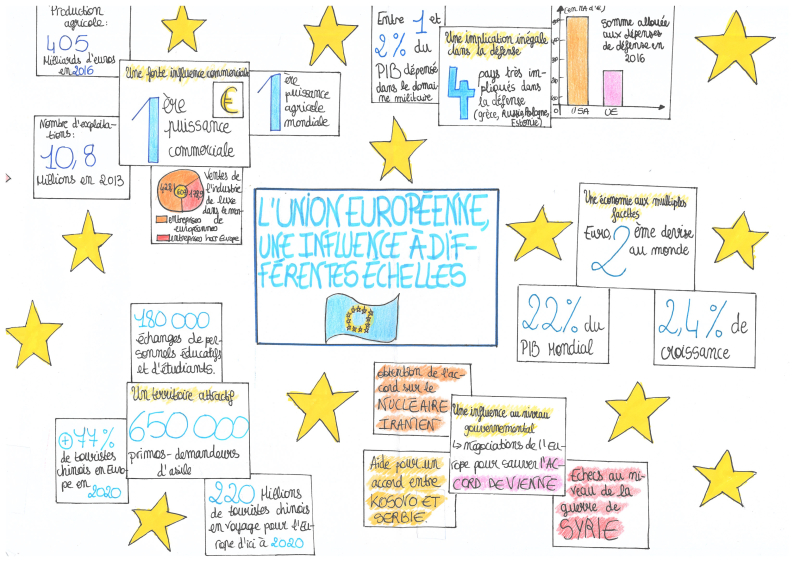 Production
agricole:
405
Milliards d'euros
en 2016
Une forte influence commerciale
1ère
puissance
commerciale
€
1ère
puissance
agricole
mondiale
Nombre d'exploita-
tions:
10,8
Millions en 2013
Ventes de
l'industrie
de luxe
dans le mon-
de
entreprises
européennes
entreprises hors Europe
Entre 1 et
2% du
PIB dépensé
dans le domai-
ne militaire
Une implication inégale
dans la défense
4 pays très im-
pliqués dans
la défense
(grèce, Russie, Pologne,
Estonie)
Somme allouée
aux dépenses
de défense en
2016
USA
UE
L'UNION EUROPÉENNE,
UNE INFLUENCE À DIF-
FÉRENTES ÉCHELLES
Une économie aux multiples
facettes
Euro, 2ème devise
au monde
22% du
PIB Mondial
2,4% de
croissance
180 000
échanges de per-
sonnels éducatifs
et d'étudiants.
Un territoire attractif
650 000
primos-demandeurs
d'asile
+77%
de touristes
chinois en Euro-
pe en
2020
220 Millions
de touristes chinois
en voyage pour l'Eu-
rope d'ici à 2020
obtention de l'ac-
cord sur le
NUCLÉAIRE
IRANIEN
Une influence au niveau
gouvernemental
↳ négociations de l'Eu-
rope pour sauver l'AC-
CORD DE VIENNE
Aide pour un
accord entre
KOSOVO ET
SERBIE.
Echecs au ni-
veau de la
guerre de
SYRIE